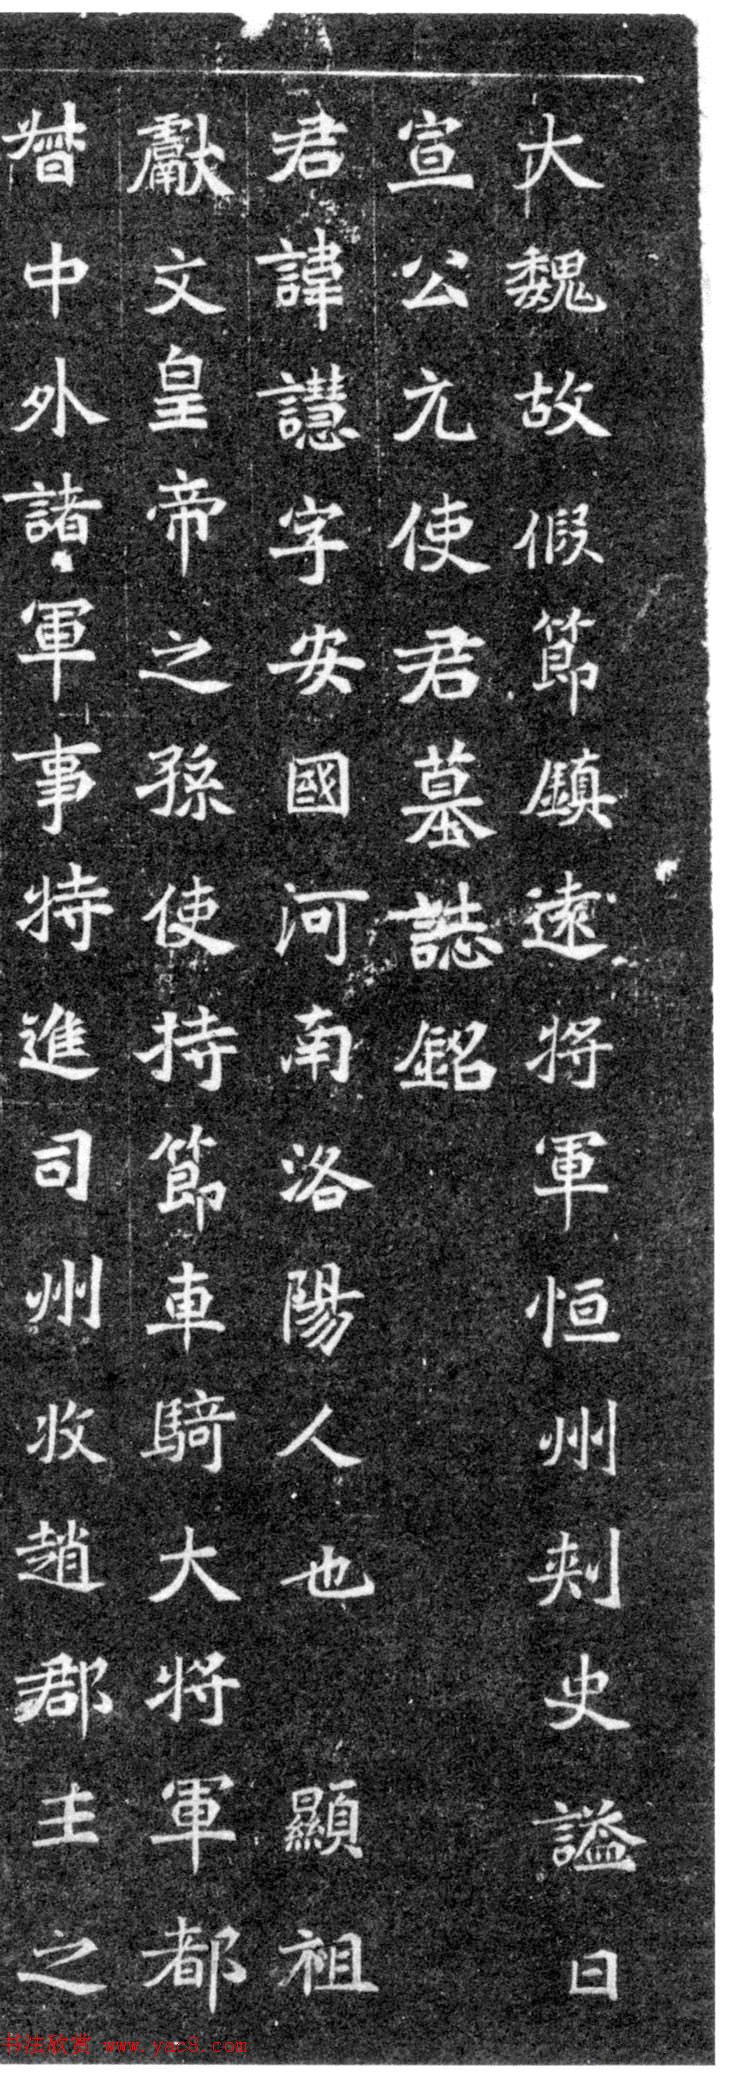 大魏故假節鎮遠將軍恒州刺史謚曰
宣公元使君墓誌銘
君諱譿字安國河南洛陽人也 顯祖
獻文皇帝之孫使持節車騎大將軍都
督中外諸軍事特進司州牧趙郡王之
书法欣赏 www.yac8.com